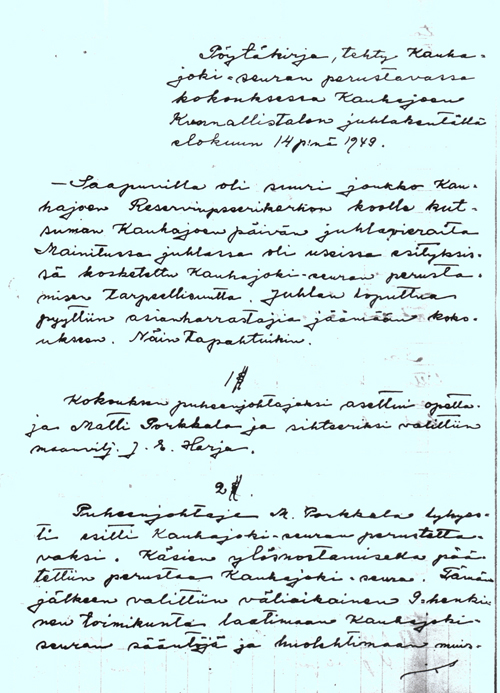 Pöytäkirja, tehty Kauha-
joki-seuran perustavassa
kokouksessa Kauhajoen
Kunnallistalon juhlakentällä
elokuun 14 p:nä 1949.
— Saapuvilla oli suuri joukko Kau-
hajoen Reserviupseerikerhon koolle kut-
suman Kauhajoen päivän juhlavieraita
Mainitussa juhlassa oli useissa esityksis-
sä kosketettu Kauhajoki-seuran perusta-
misen tarpeellisuutta. Juhlan loputtua
pyydettiin asianharrastajia jäämään koko-
ukseen. Näin tapahtuikin.
1 §
Kokouksen puheenjohtajaksi asettui opetta-
ja Matti Porkkala ja sihteeriksi valittiin
maanvilj. J. E. Harja.
2 §.
Puheenjohtaja M. Porkkala lyhyes-
ti esitti Kauhajoki-seuran perustetta-
vaksi. Käsien ylösnostamisella pää-
tettiin perustaa Kauhajoki-seura. Tämän
jälkeen valittiin väliaikainen 9-henki-
nen toimikunta laatimaan Kauhajoki-
seuran sääntöjä ja huolehtimaan muis-